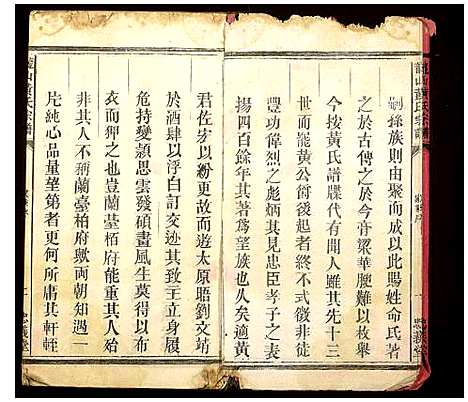 龍山黃氏宗譜
嗣孫族則由聚而成以此賜姓命氏著
之於古傳之於今膏粱華腴難以枚舉
今按黃氏譜牒代有聞人雖其先十三
世而罷黃公衛後起終不式微非徒
豐功偉烈之彪炳其見忠臣孝子之表
揚四百餘年其著為望族也久矣適黃
君佐方以紛更故而遊太原晤劉文靖
於酒肆以浮白訂交迹其王立身履
危持變潁思雲發碩畫風生莫得以布
衣而狎之也豈蘭臺栢府能重其門與
非其人不柄蘭臺柏府歟兩朝知遇一
片純心品量望第者更何所庸其軒輊
龍山黃氏宗譜
忠義堂